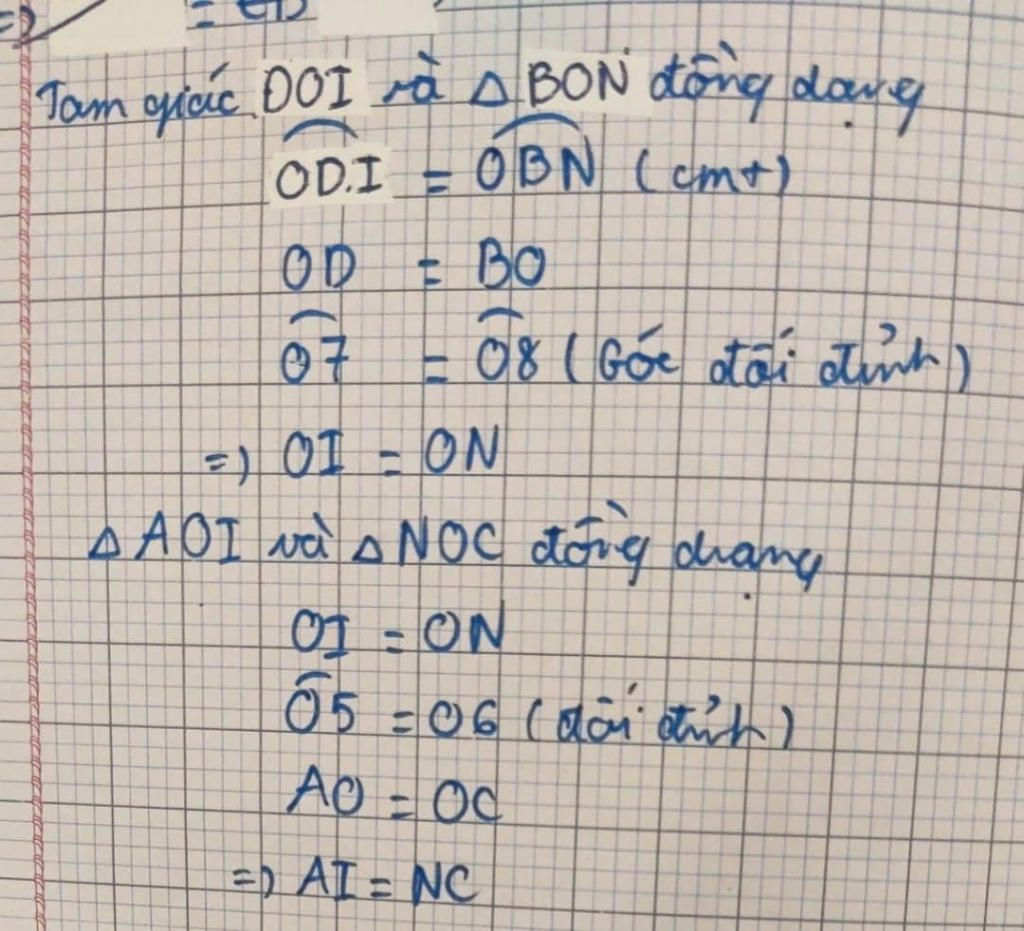 Tam giác DOI và △ BON đồng dạng
ODI = OBN (cmt)
OD = BO
O7 = O8 (Góc đối đỉnh)
=> OI = ON
△ AOI và △ NOC đồng dhạng
OI = ON
O5 = O6 (đối đỉnh)
AO = OC
=> AI = NC